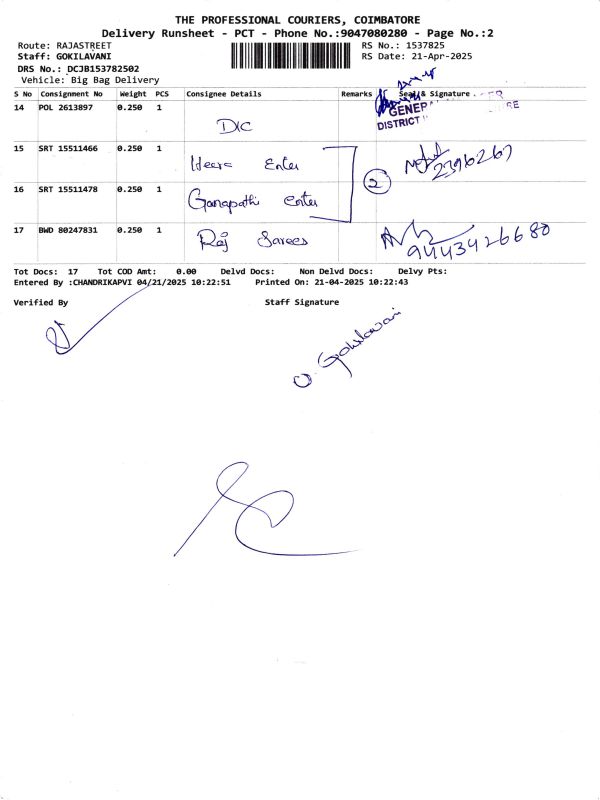 THE PROFESSIONAL COURIERS, COIMBATORE
Delivery Runsheet - PCT - Phone No.:9047080280 - Page No.:2
Route: RAJASTREET RS No.: 1537825
Staff: GOKILAVANI RS Date: 21-Apr-2025
DRS No.: DCJB153782502
Vehicle: Big Bag Delivery
S No Consignment No Weight PCS Consignee Details Remarks Seal & Signature
14 POL 2613897 0.250 1
GENERAL
DISTRICT
DIC
15 SRT 15511466 0.250 1
Heera Enter
2396267
16 SRT 15511478 0.250 1
2
Ganapathi Enter
17 BWD 80247831 0.250 1
Raj Sarees
9443426680
Tot Docs: 17 Tot COD Amt: 0.00 Delvd Docs: Non Delvd Docs: Delvy Pts:
Entered By :CHANDRIKAPVI 04/21/2025 10:22:51 Printed On: 21-04-2025 10:22:43
Verified By Staff Signature
V. Gokilavani